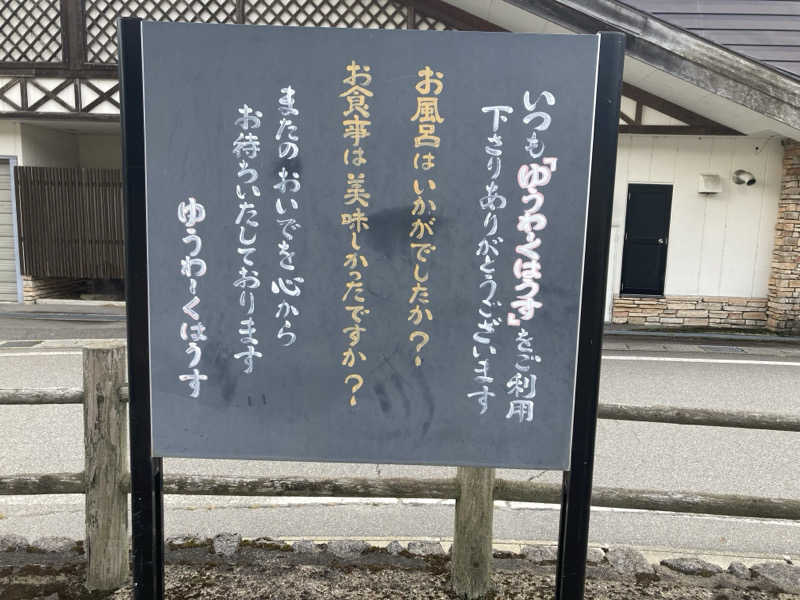 いつも『ゆうわ～くはうす』をご利用
下さりありがとうございます
お風呂はいかがでしたか？
お食事は美味しかったですか？
またのおいでを心から
お待ちいたしております
ゆうわ～くはうす